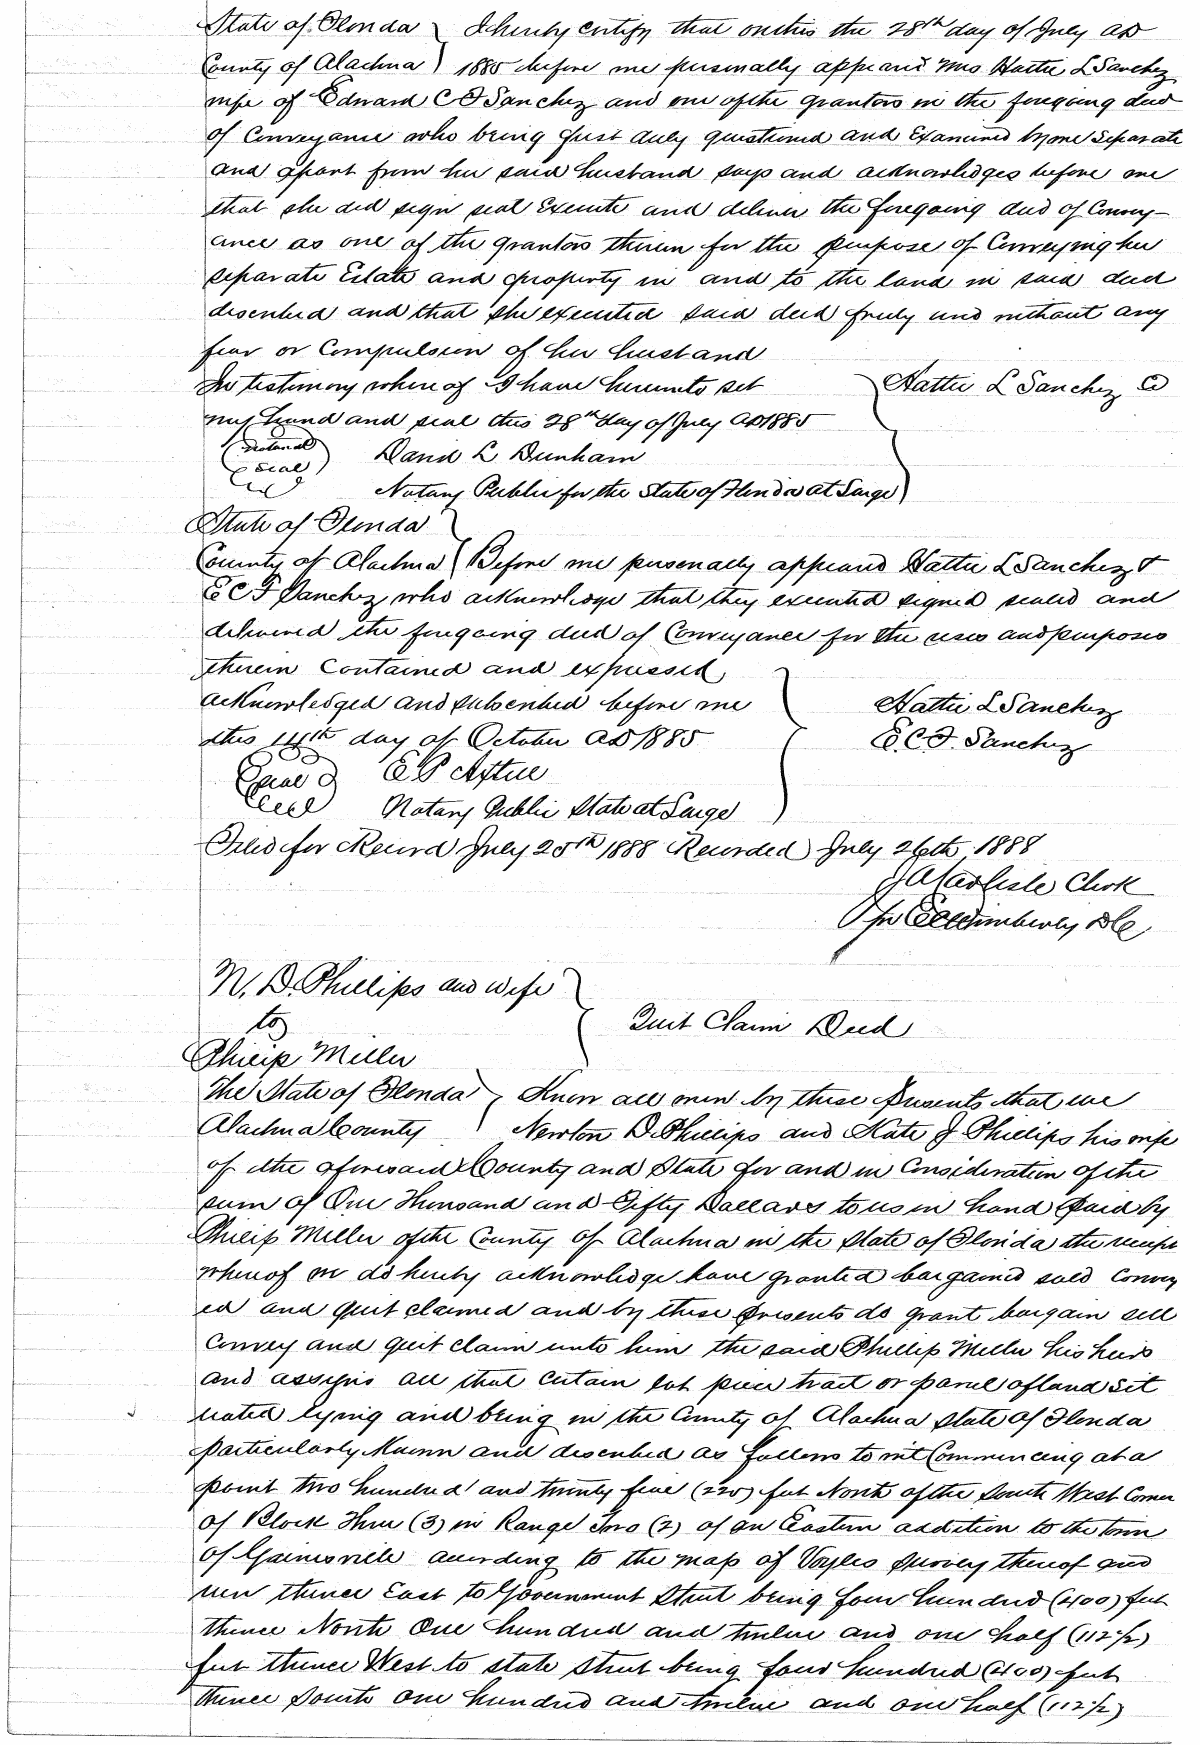 State of Florida } I hereby certify that on this the 28th day of July AD
County of Alachua } 1885 before me personally appeared Mrs Hattie L Sanchez
wife of Edward C F Sanchez and one of the grantors in the foregoing deed
of Conveyance who being first duly questioned and Examined by me Separate
and apart from her said husband says and acknowledges before me
that she did sign seal Execute and deliver the foregoing deed of Convey-
ance as one of the grantors therein for the purpose of Conveying her
separate Estate and property in and to the land in said deed
described and that she executed said deed freely and without any
fear or Compulsion of her husband
In testimony where of I have hereunto set } Hattie L Sanchez
my hand and seal this 28th day of July AD 1885
(Notarial David L Dunham
(Seal) Notary Public for the State of Florida at Large)
State of Florida }
County of Alachua } Before me personally appeared Hattie L Sanchez &
E C F Sanchez who acknowledge that they executed signed sealed and
delivered the foregoing deed of Conveyance for the uses and purposes
therein Contained and expressed
acknowledged and subscribed before me } Hattie L Sanchez
this 14th day of October AD 1885 E. C. F. Sanchez
Seal E P
Notary Public State at Large
Filed for Record July 25th 1888 Recorded July 26th 1888
J A Carlisle Clerk
Wimberly DC
N. D. Phillips and wife }
to } Quit Claim Deed
Philip Miller
The State of Florida } Know all men by these presents that we
Alachua County } Newton D. Phillips and Kate J. Phillips his wife
of the aforesaid County and State for and in Consideration of the
sum of One Thousand and Fifty Dollars to us in hand paid by
Philip Miller of the County of Alachua in the State of Florida the receipt
whereof we do hereby acknowledge have granted bargained sold Convey
ed and quit claimed and by these presents do grant bargain sell
Convey and quit claim unto him the said Phillip Miller his heirs
and assigns all that certain lot piece tract or parcel of land sit
uated lying and being in the County of Alachua State of Florida
particularly Known and described as follows to wit Commencing at a
point two hundred and twenty five (225) feet North of the South West Corner
of Block Three (3) in Range Two (2) of an Eastern addition to the town
of Gainesville according to the map of Voyles survey thereof and
run thence East to Government Street being four hundred (400) feet
thence North One hundred and twelve and one half (112½)
feet thence West to state street being four hundred (400) feet
thence South one hundred and twelve and one half (112½)